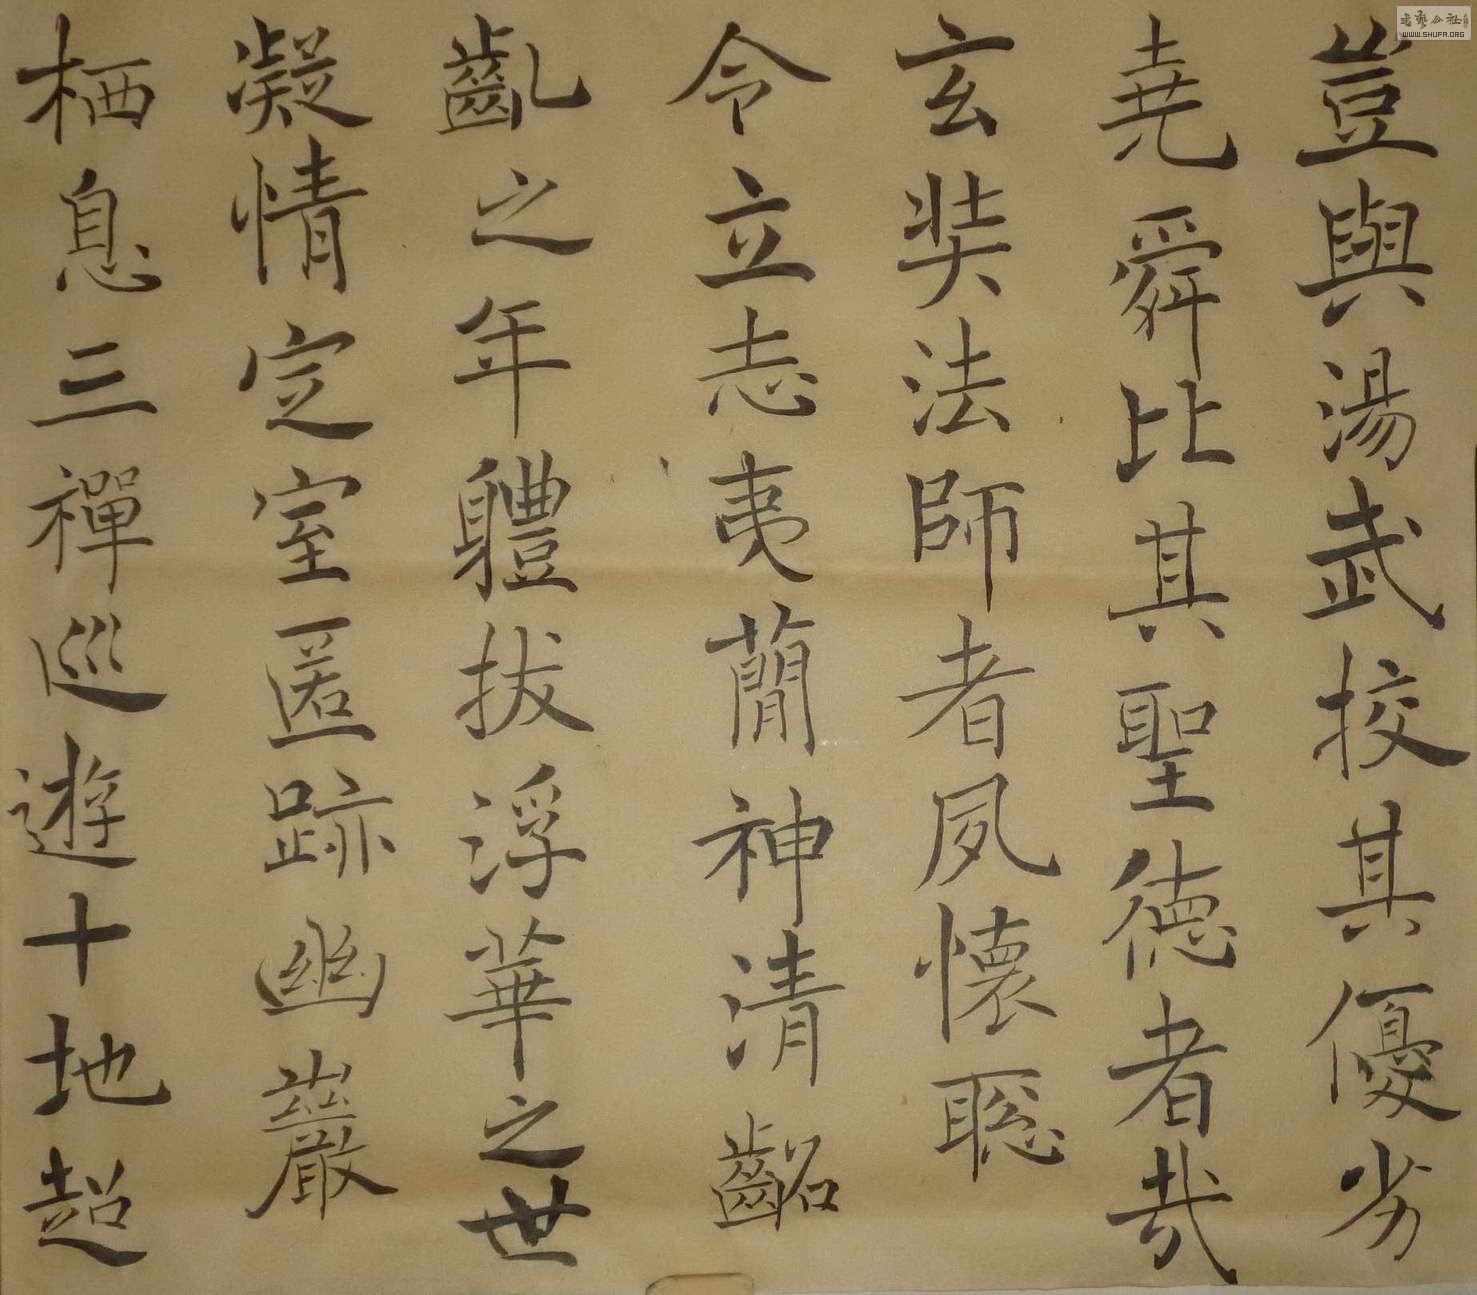 豈與湯武挍其優劣
堯舜比其聖徳者哉
玄奘法師者夙懷聡
令立志夷蕳神清齠
齓之年軆拔浮華之世
凝情定室匿跡幽巖
栖息三禪巡遊十地超
书艺公社
WWW.SHUFA.ORG